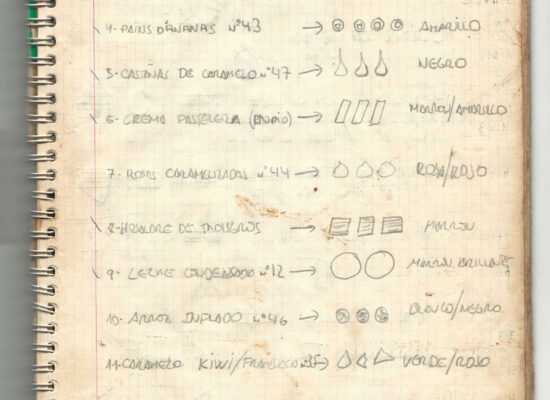 4- PAINS D'ANANAS Nº43 → AMARILLO
5- CASTAÑAS DE CARAMELO Nº47 → NEGRO
6- CREMA PASTELERA → MARRON/AMARILLO
7- ROSAS CARAMELIZADAS Nº44 → ROSA/ROJO
8- HOJALDRE DE → MARRON
9- LECHE CONDENSADA Nº12 → MARRON BRILLANTE
10- ARROZ INFLADO Nº46 → BLANCO/NEGRO
11- CARAMELO KIWI/FRAMBUESA Nº35 → VERDE/ROJO